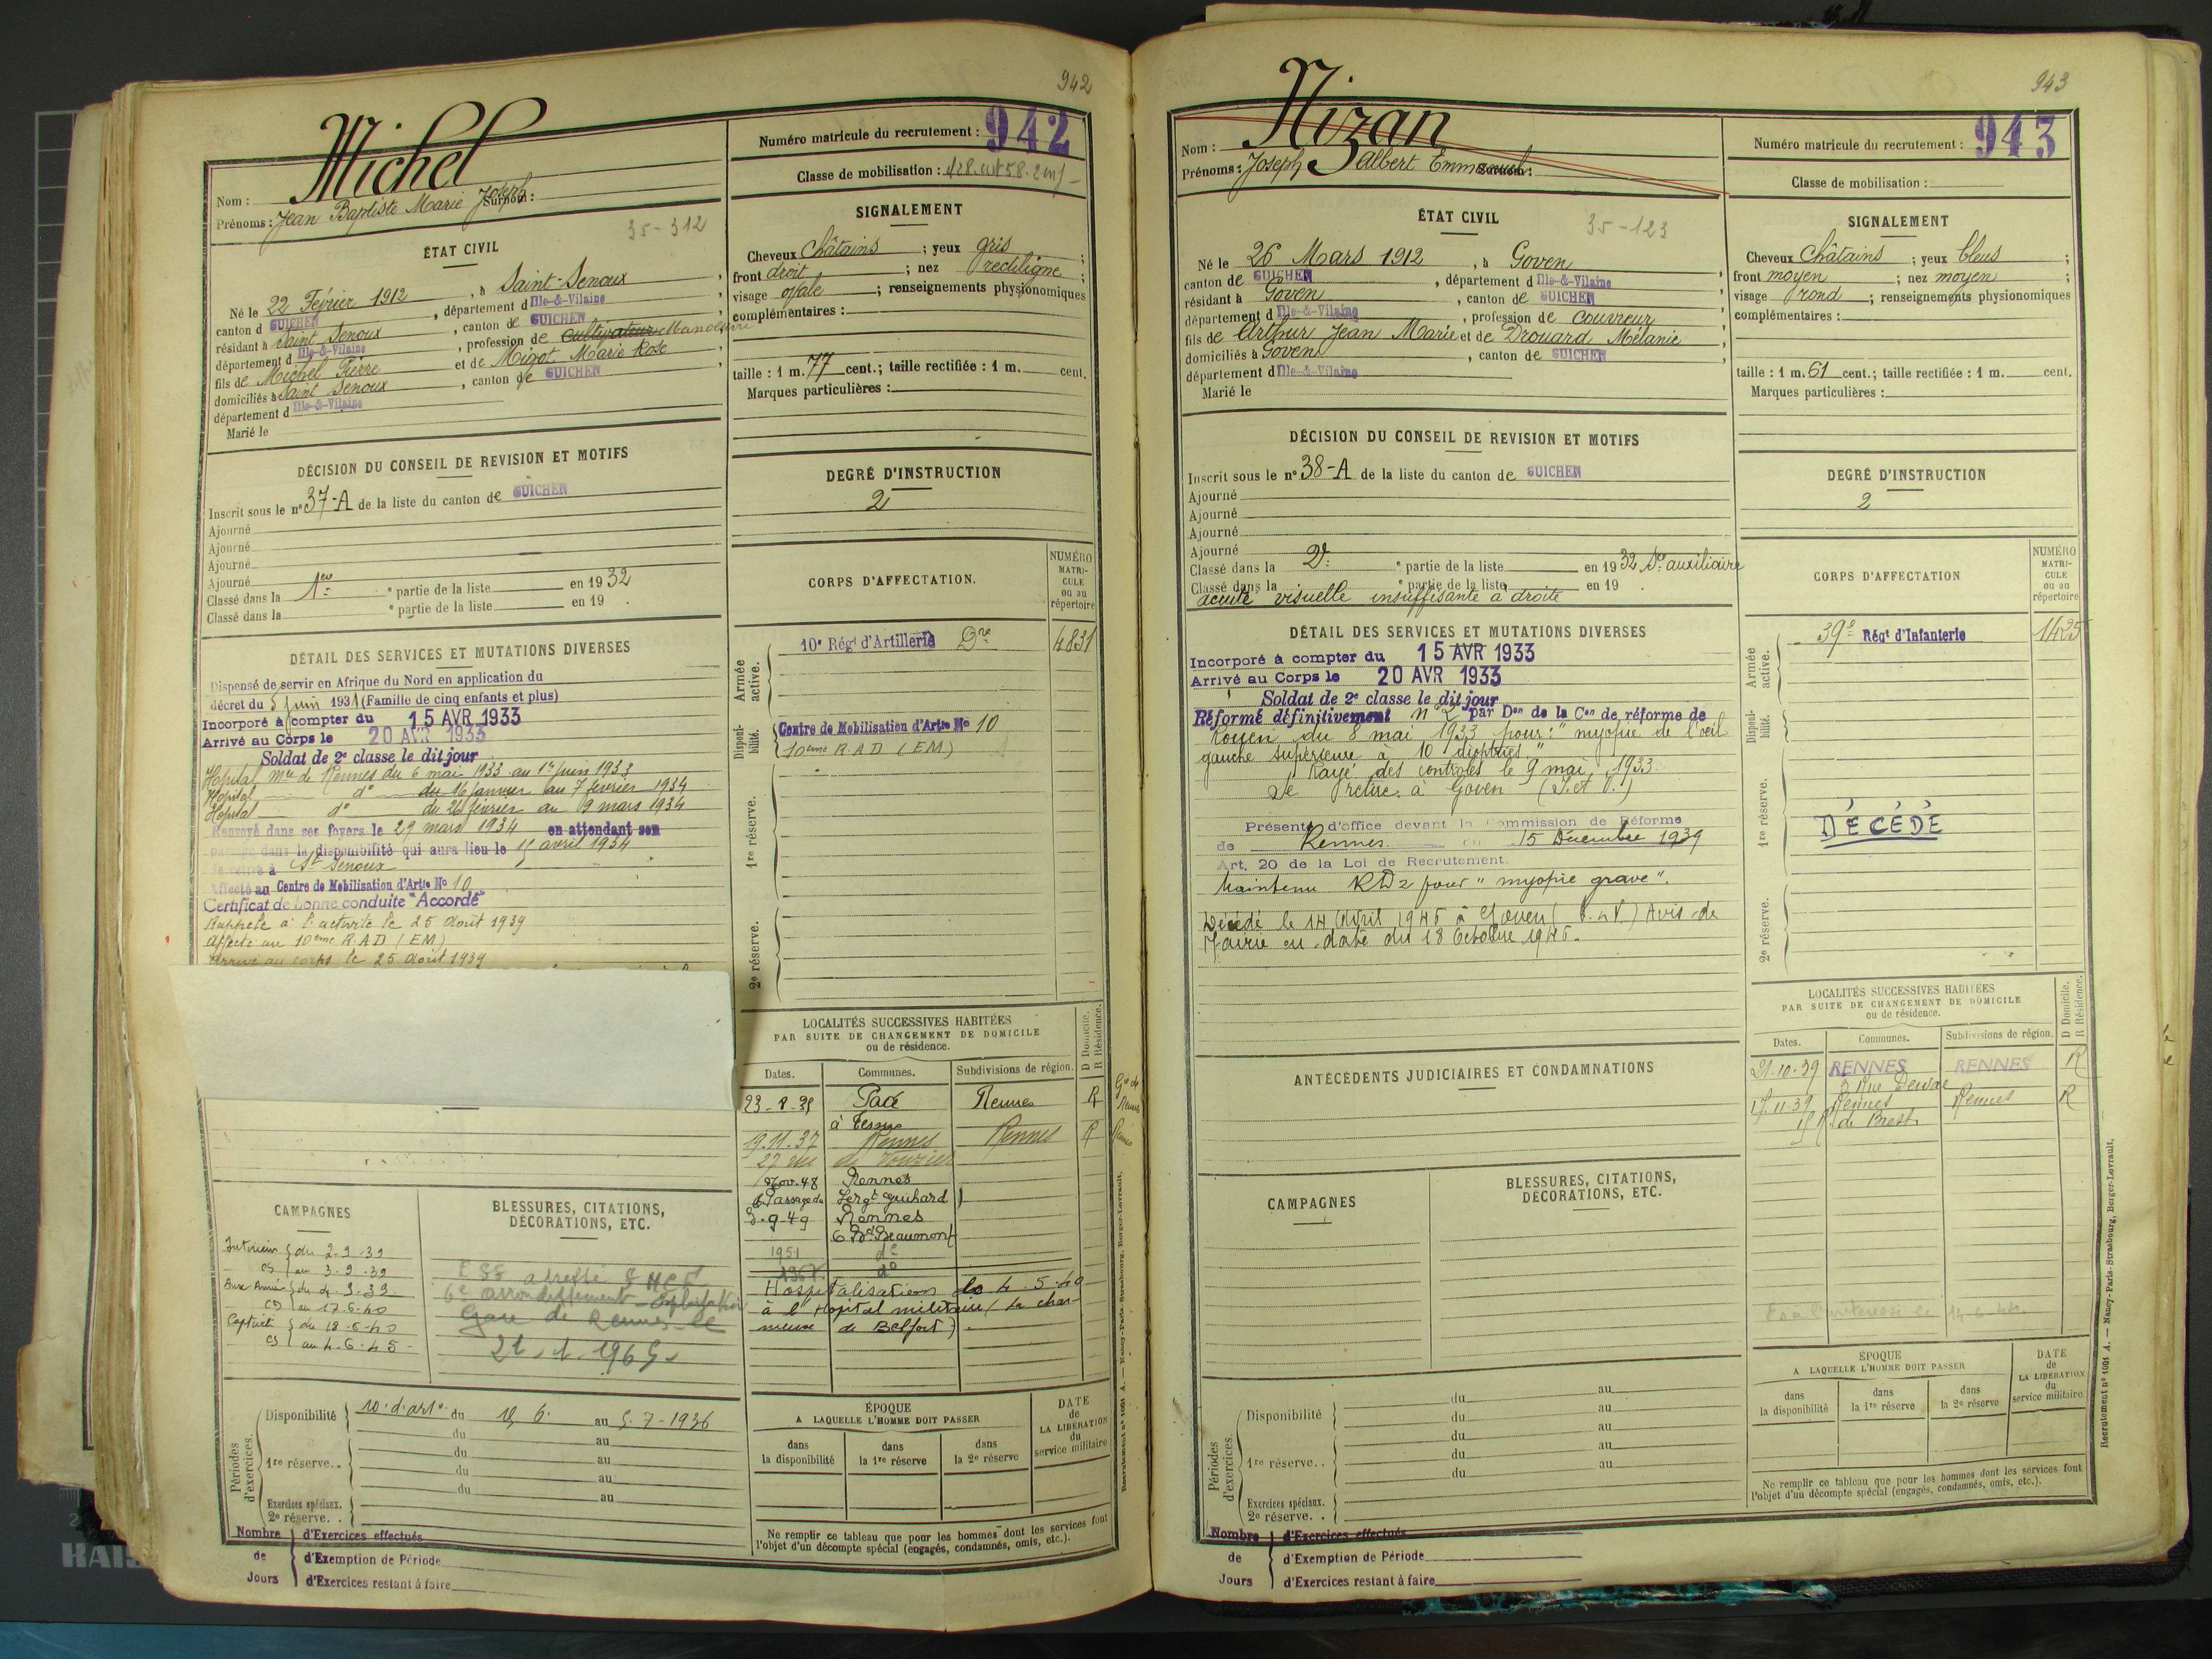 942
Michel
Nom :
Prénoms : Jean Baptiste Marie Joseph Surnom :
Numéro matricule du recrutement : 942
Classe de mobilisation :
35-312
ÉTAT CIVIL
Né le 22 Février 1912, à Saint-Senoux,
canton d GUICHEN, département d Ille-&-Vilaine,
résidant à Saint Senoux, canton de GUICHEN
département d Ille-&-Vilaine, profession de cultivateur Manoeuvre
fils de Michel Pierre et de Migot Marie Rose
domiciliés à Saint Senoux, canton de GUICHEN,
département d Ille-&-Vilaine
Marié le
SIGNALEMENT
Cheveux Châtains ; yeux gris ;
front droit ; nez rectiligne ;
visage ovale ; renseignements physionomiques
complémentaires :
taille : 1 m. 77 cent.; taille rectifiée : 1 m. cent.
Marques particulières :
DÉCISION DU CONSEIL DE REVISION ET MOTIFS
Inscrit sous le n° 37-A de la liste du canton de GUICHEN
Ajourné
Ajourné
Ajourné
Ajourné
Classé dans la 1ère partie de la liste en 1932
Classé dans la partie de la liste en 19 .
DEGRÉ D'INSTRUCTION
2
DÉTAIL DES SERVICES ET MUTATIONS DIVERSES
Dispensé de servir en Afrique du Nord en application du
décret du 5 juin 1931 (Famille de cinq enfants et plus)
Incorporé à compter du 15 AVR 1933
Arrivé au Corps le 20 AVR 1933
Soldat de 2e classe le dit jour
Hopital Mre de Rennes du 6 mai 1933 au 1er juin 1933
Hopital d° du 16 janvier au 7 février 1934
Hopital d° du 26 février au 9 mars 1934
Renvoyé dans ses foyers le 29 mars 1934 en attendant son
passage dans la disponibilité qui aura lieu le 15 avril 1934
Se retire à St Senoux
Affecté au Centre de Mobilisation d'Artie N° 10
Certificat de bonne conduite "Accordé"
Rappelé à l'activité le 25 Août 1939
Affecté au 10ème R.A.D (EM)
Arrivé au corps le 25 Août 1939
CORPS D'AFFECTATION.
NUMÉRO MATRICULE ou au répertoire
Armée active.
10e Régt d'Artillerie Dre 4831
Disponibilité.
Centre de Mobilisation d'Artie N° 10
10ème R.A.D (EM)
1re réserve.
2e réserve.
LOCALITÉS SUCCESSIVES HABITÉES
PAR SUITE DE CHANGEMENT DE DOMICILE
ou de résidence.
D Domicile. R Résidence.
Dates. Communes. Subdivisions de région.
23-8-35 Pacé Rennes R
19.11.37 Rennes Rennes R
Nov.48 Rennes
Passage du Sergt Guihard
3-9-49 Rennes
6 Bd Beaumont
1951 d°
1967 d°
Hospitalisation le 4.5.40
à l'Hopital militaire (La char-
meuse de Belfort).
CAMPAGNES
Intérieur du 2-9-39
CS au 3-9-39
Aux Armées du 4-9-39
CS au 17-6-40
Captivité du 18-6-40
CS au 4-6-45
BLESSURES, CITATIONS,
DÉCORATIONS, ETC.
6e arrondissement - Exploitation
Gare de Rennes le
21-1-1965
Périodes d'exercices.
Disponibilité 10e d'artie du 15 6. au 5-7-1936
du au
1re réserve.. du au
du au
du au
Exercices spéciaux.
2e réserve. .
Nombre de Jours
d'Exercices effectués
d'Exemption de Période
d'Exercices restant à faire
ÉPOQUE
A LAQUELLE L'HOMME DOIT PASSER
dans la disponibilité
dans la 1re réserve
dans la 2e réserve
DATE de LA LIBÉRATION du service militaire
Ne remplir ce tableau que pour les hommes dont les services font
l'objet d'un décompte spécial (engagés, condamnés, omis, etc.).
Recrutement n° 1001 A. — Nancy-Paris-Strasbourg, Berger-Levrault.
943
Nizan
Nom :
Prénoms : Joseph Albert Emmanuel Surnom :
Numéro matricule du recrutement : 943
Classe de mobilisation :
35-123
ÉTAT CIVIL
Né le 26 Mars 1912, à Goven,
canton de GUICHEN, département d Ille-&-Vilaine
résidant à Goven, canton de GUICHEN
département d Ille-&-Vilaine, profession de couvreur
fils de Arthur Jean Marie et de Drouard Mélanie,
domiciliés à Goven, canton de GUICHEN
département d Ille-&-Vilaine
Marié le
SIGNALEMENT
Cheveux Châtains ; yeux bleus ;
front moyen ; nez moyen ;
visage rond ; renseignements physionomiques
complémentaires :
taille : 1 m. 61 cent.; taille rectifiée : 1 m. cent.
Marques particulières :
DÉCISION DU CONSEIL DE REVISION ET MOTIFS
Inscrit sous le n° 38-A de la liste du canton de GUICHEN
Ajourné
Ajourné
Ajourné
Ajourné
Classé dans la 2e partie de la liste en 1932 Sce auxiliaire
Classé dans la partie de la liste en 19 .
acuité visuelle insuffisante à droite
DEGRÉ D'INSTRUCTION
2
DÉTAIL DES SERVICES ET MUTATIONS DIVERSES
Incorporé à compter du 15 AVR 1933
Arrivé au Corps le 20 AVR 1933
Soldat de 2e classe le dit jour
Réformé définitivement n°2 par Don de la Con de réforme de
Rouen du 8 mai 1933 pour : "myopie de l'oeil
gauche supérieure à 10 dioptries"
Rayé des contrôles le 9 mai 1933.
Se retire à Goven (I. et V.)
Présenté d'office devant la Commission de Réforme
de Rennes du 15 Décembre 1939
Art. 20 de la Loi de Recrutement.
Maintenu RD2 pour "myopie grave".
Décédé le 14 Avril 1945 à Goven (I. et V.) Avis de
Mairie en date du 18 Octobre 1945.
CORPS D'AFFECTATION
NUMÉRO MATRICULE ou au répertoire
Armée active.
39e Régt d'Infanterie 1425
Disponibilité.
1re réserve.
DÉCÉDÉ
2e réserve.
LOCALITÉS SUCCESSIVES HABITÉES
PAR SUITE DE CHANGEMENT DE DOMICILE
ou de résidence.
D Domicile. R Résidence.
Dates. Communes. Subdivisions de région.
21.10.39 RENNES RENNES R
17.11.39 Rennes Rennes R
de Brest
ANTÉCÉDENTS JUDICIAIRES ET CONDAMNATIONS
CAMPAGNES
BLESSURES, CITATIONS,
DÉCORATIONS, ETC.
Périodes d'exercices.
Disponibilité du au
du au
du au
1re réserve. . du au
du au
Exercices spéciaux.
2e réserve. .
Nombre de Jours
d'Exercices effectués
d'Exemption de Période
d'Exercices restant à faire
ÉPOQUE
A LAQUELLE L'HOMME DOIT PASSER
dans la disponibilité
dans la 1re réserve
dans la 2e réserve
DATE de LA LIBÉRATION du service militaire
Ne remplir ce tableau que pour les hommes dont les services font
l'objet d'un décompte spécial (engagés, condamnés, omis, etc.).
Recrutement n° 1001 A. — Nancy-Paris-Strasbourg, Berger-Levrault.